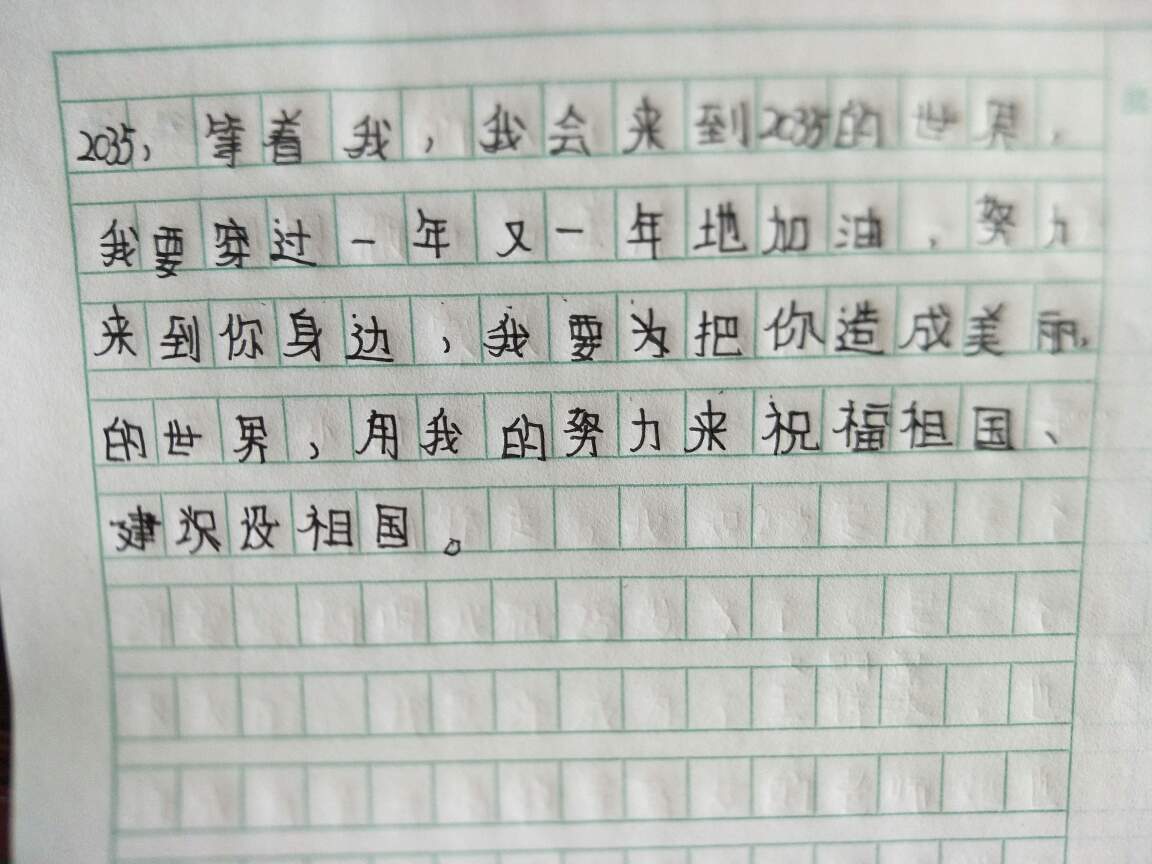 2035，等着我，我会来到2035的世界，
我要穿过一年又一年地加油，努力
来到你身边，我要为把你造成美丽，
的世界，用我的努力来祝福祖国、
建设祖国。